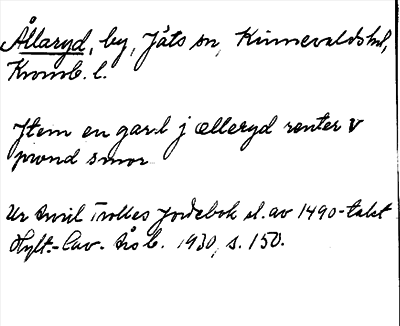 Ållaryd, by, Jäts sn, Kinnevalds hd,
Kronob. l.
Jtem en gard j ælleryd renter V
pwnd smør
Ur Arvil Trolles Jordebok sl. av 1490-talet
Hylt.-Cav. Årsb. 1930, s. 150.